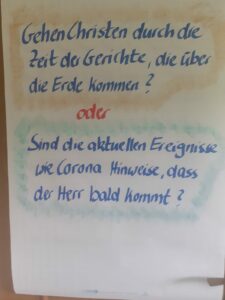 Gehen Christen durch die
Zeit der Gerichte, die über
die Erde kommen?
oder
Sind die aktuellen Ereignisse
wie Corona Hinweise, dass
der Herr bald kommt?